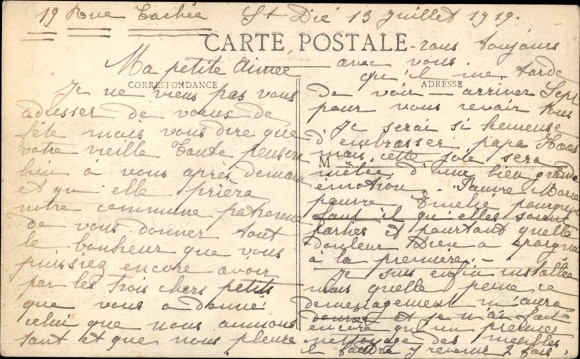 19 Rue Cachée St Dié 13 Juillet 1919.
CARTE POSTALE
CORRESPONDANCE
ADRESSE
Ma petite Aimée
Je ne viens pas vous
adresser de voeus de
fête mais vous dire que
votre vieille tante pensera
bien à vous après demain
et qu'elle priera
notre commune patronne
de vous donner tout
le bonheur que vous
puissiez encore avoir
par les trois chers petits
que vous a donné
celui que nous aimons
tant et que nous pleure
rons toujours
avec vous.
qu'il me tarde
de voir arriver Sept
pour vous revoir tous
Je serai si heureuse
d'embrasser papa
mais cette joie sera
M
mêlée d'une bien grande
émotion. Pauvre Marie
pauvre Emélie pourquoi
faut il qu'elles soient
parties et pourtant quelle
douleur Dieu a épargné
à la première. -
Je suis enfin installée
mais quelle peine ce
déménagement m'aura
donnée et je n'ai fait
encore qu'un premier
nettoyage des meubles
il faudra y revenir 2 fois.